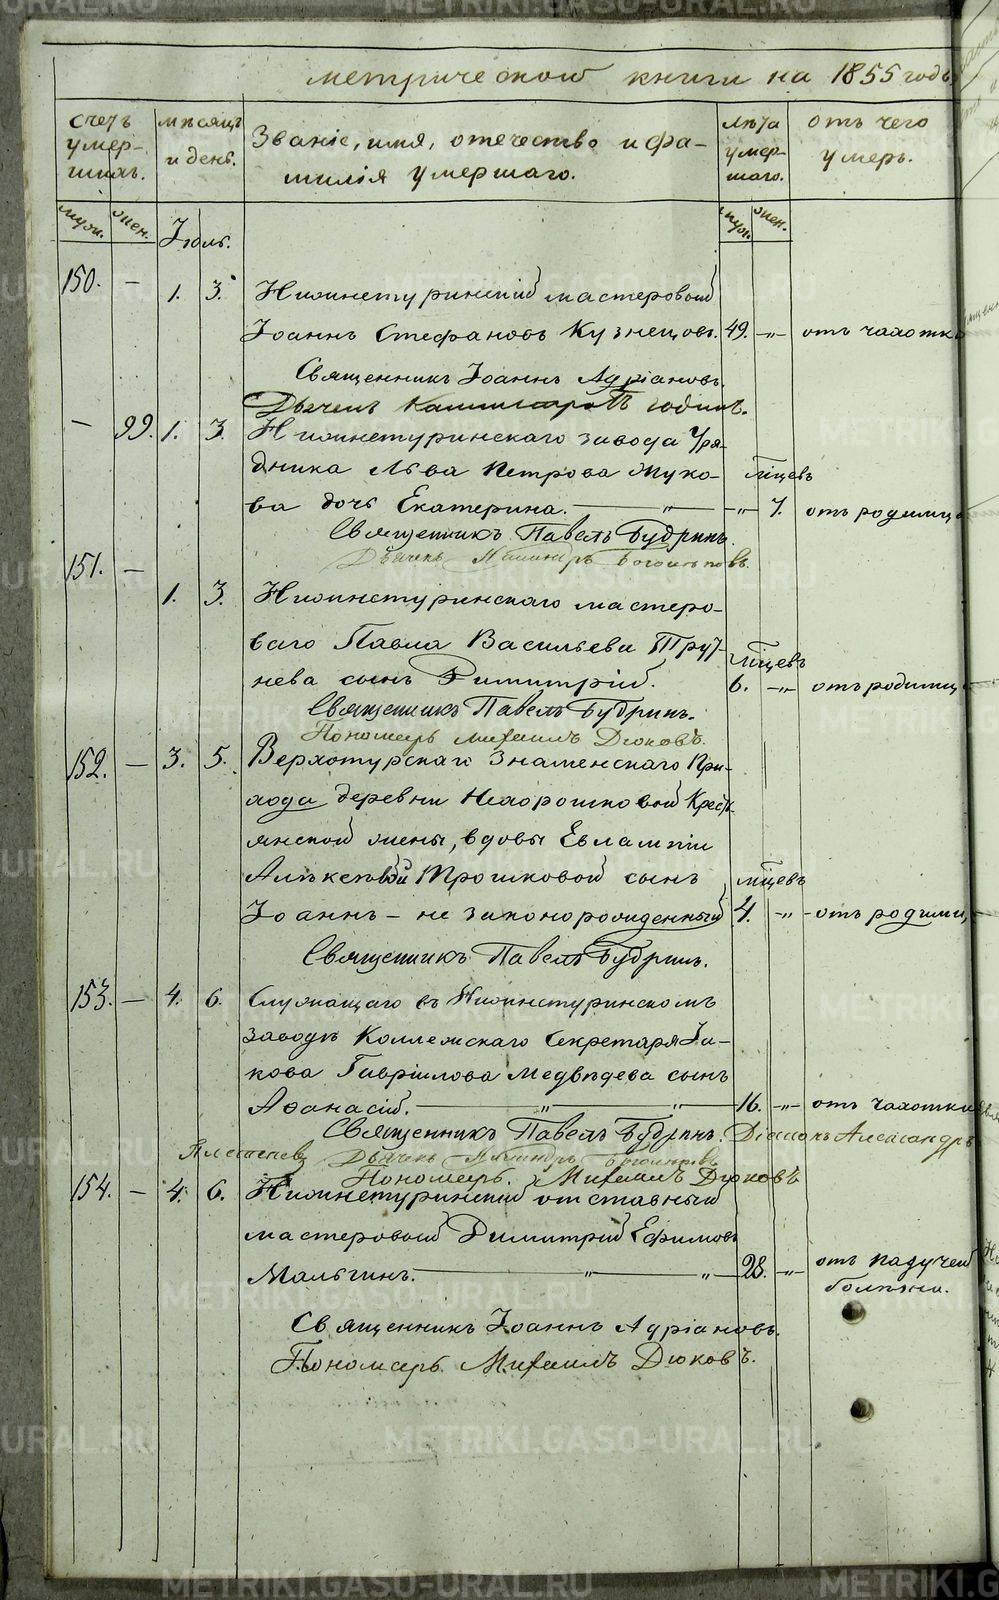 метрической книги на 1855 годъ
Счетъ умер-шихъ.
мѣсяцъ и день.
Званіе, имя, отечество и фа-
милія умершаго.
лѣта умер-шаго.
отъ чего умеръ.
муж. жен. Іюль. муж. жен.
150. — 1. 3. Нижнетуринскій мастеровой
Іоаннъ Стефановъ Кузнецовъ. 49. —„— отъ чахотки
Священникъ Іоаннъ Адріановъ.
Дьячекъ
— 99. 1. 3. Нижнетуринскаго завода Уря-
дника Льва Петрова Жуко- мѣсяцевъ
ва дочь Екатерина. — „ — „ — 7. отъ родимца
Священникъ Павелъ Будринъ.
Дьячекъ
151. — 1. 3. Нижнетуринскаго мастеро-
ваго Павла Васильева Тру-
нева сынъ Димитрій. мѣсяцевъ 6. —„— отъ родимца
Священникъ Павелъ Будринъ.
Пономарь Михаилъ Дюковъ.
152. — 3. 5. Верхотурскаго Знаменскаго При-
хода деревни Нехорошковой Кресть-
янской жены, вдовы Евлампіи
Алѣксѣвой Трошковой сынъ мѣсяцевъ
Іоаннъ — не законорожденный 4. —„— отъ родимц
Священникъ Павелъ Будринъ.
153. — 4. 6. Служащаго въ Нижнетуринскомъ
заводѣ Коллежскаго Секретаря Іа-
кова Гавріилова Медвѣдева сынъ
Аѳанасій. — „ — „ — 16. —„— отъ чахотки
Священникъ Павелъ Будринъ. Діаконъ Александръ
Дьячекъ
Пономарь. Михаилъ Дюковъ
154. — 4. 6. Нижнетуринскій отставный
мастеровой Димитрій Ефимовъ
Мальгинъ. — „ — „ — 28. —„— отъ падучей
болѣзни.
Священникъ Іоаннъ Адріановъ.
Пономарь Михаилъ Дюковъ.
METRIKI.GASO-URAL.RU